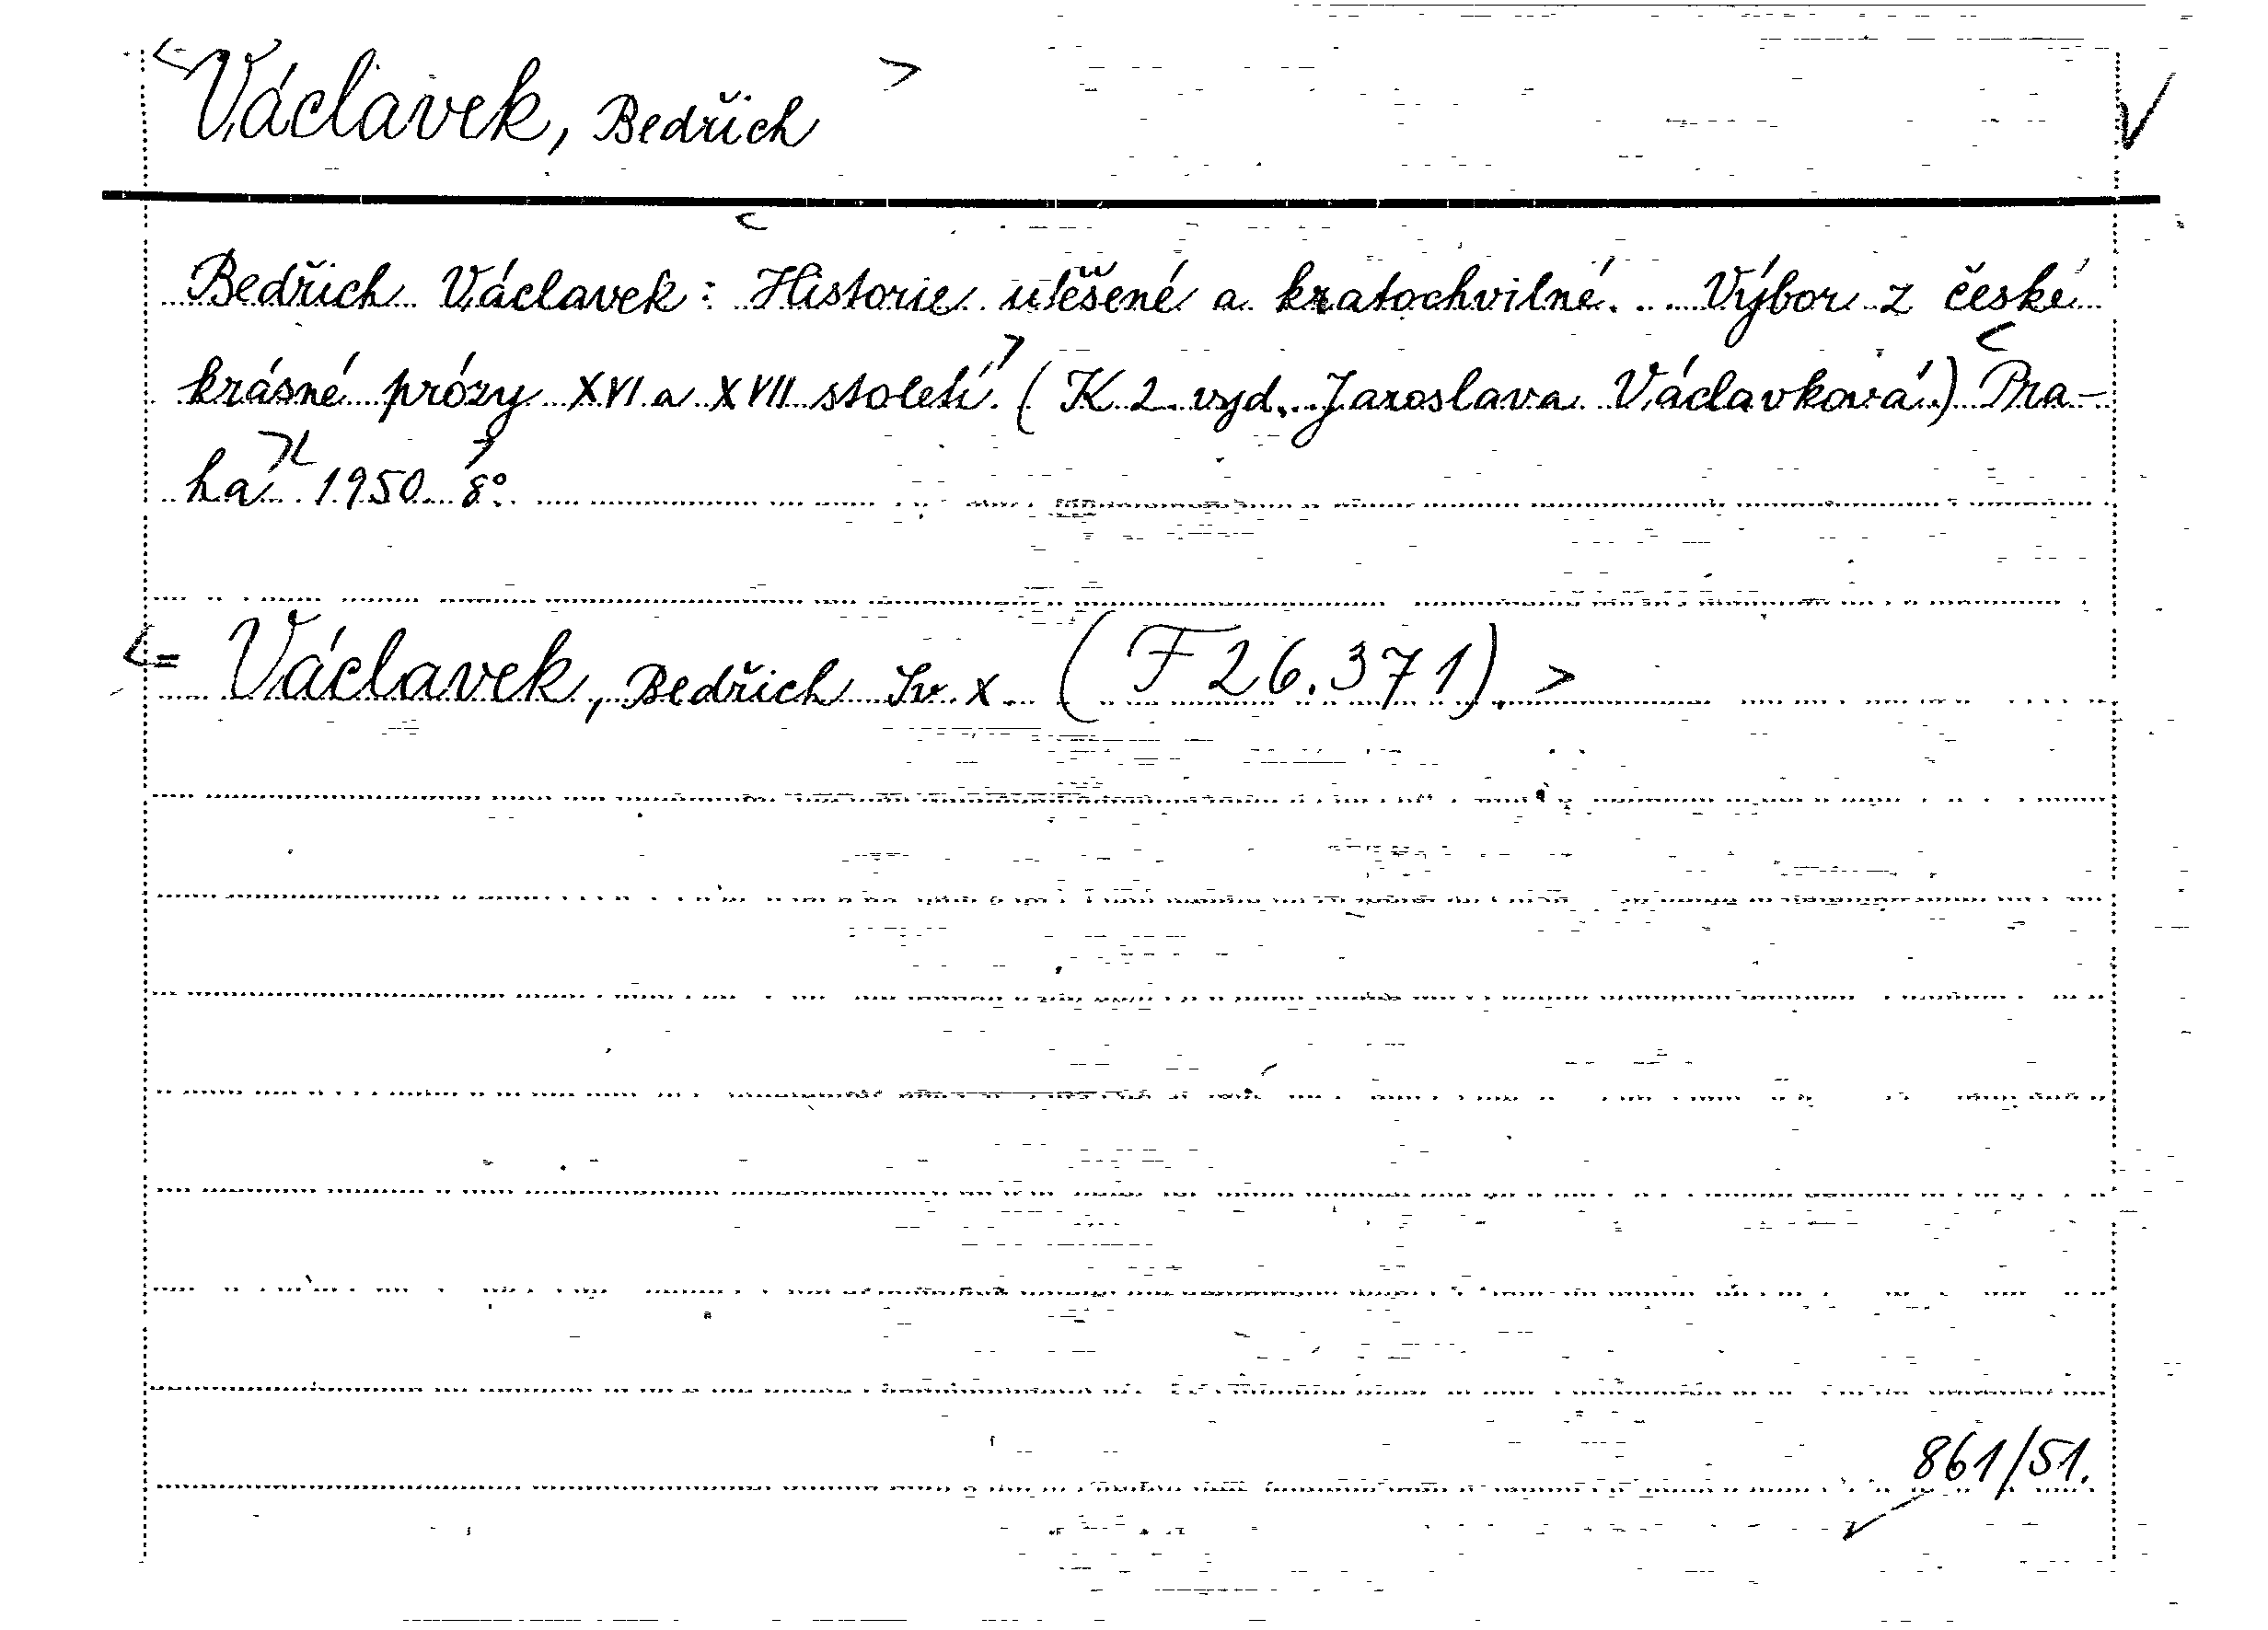 <Václavek, Bedřich>
Bedřich Václavek: <Historie utěšené a kratochvilné... Výbor z české
krásné prózy XVI a XVII století.> (K 2. vyd. Jaroslava Václavková.) <Pra-
ha> <1950. 8°.>
<= Václavek, Bedřich Sv. X. (F 26.371).>
861/51.